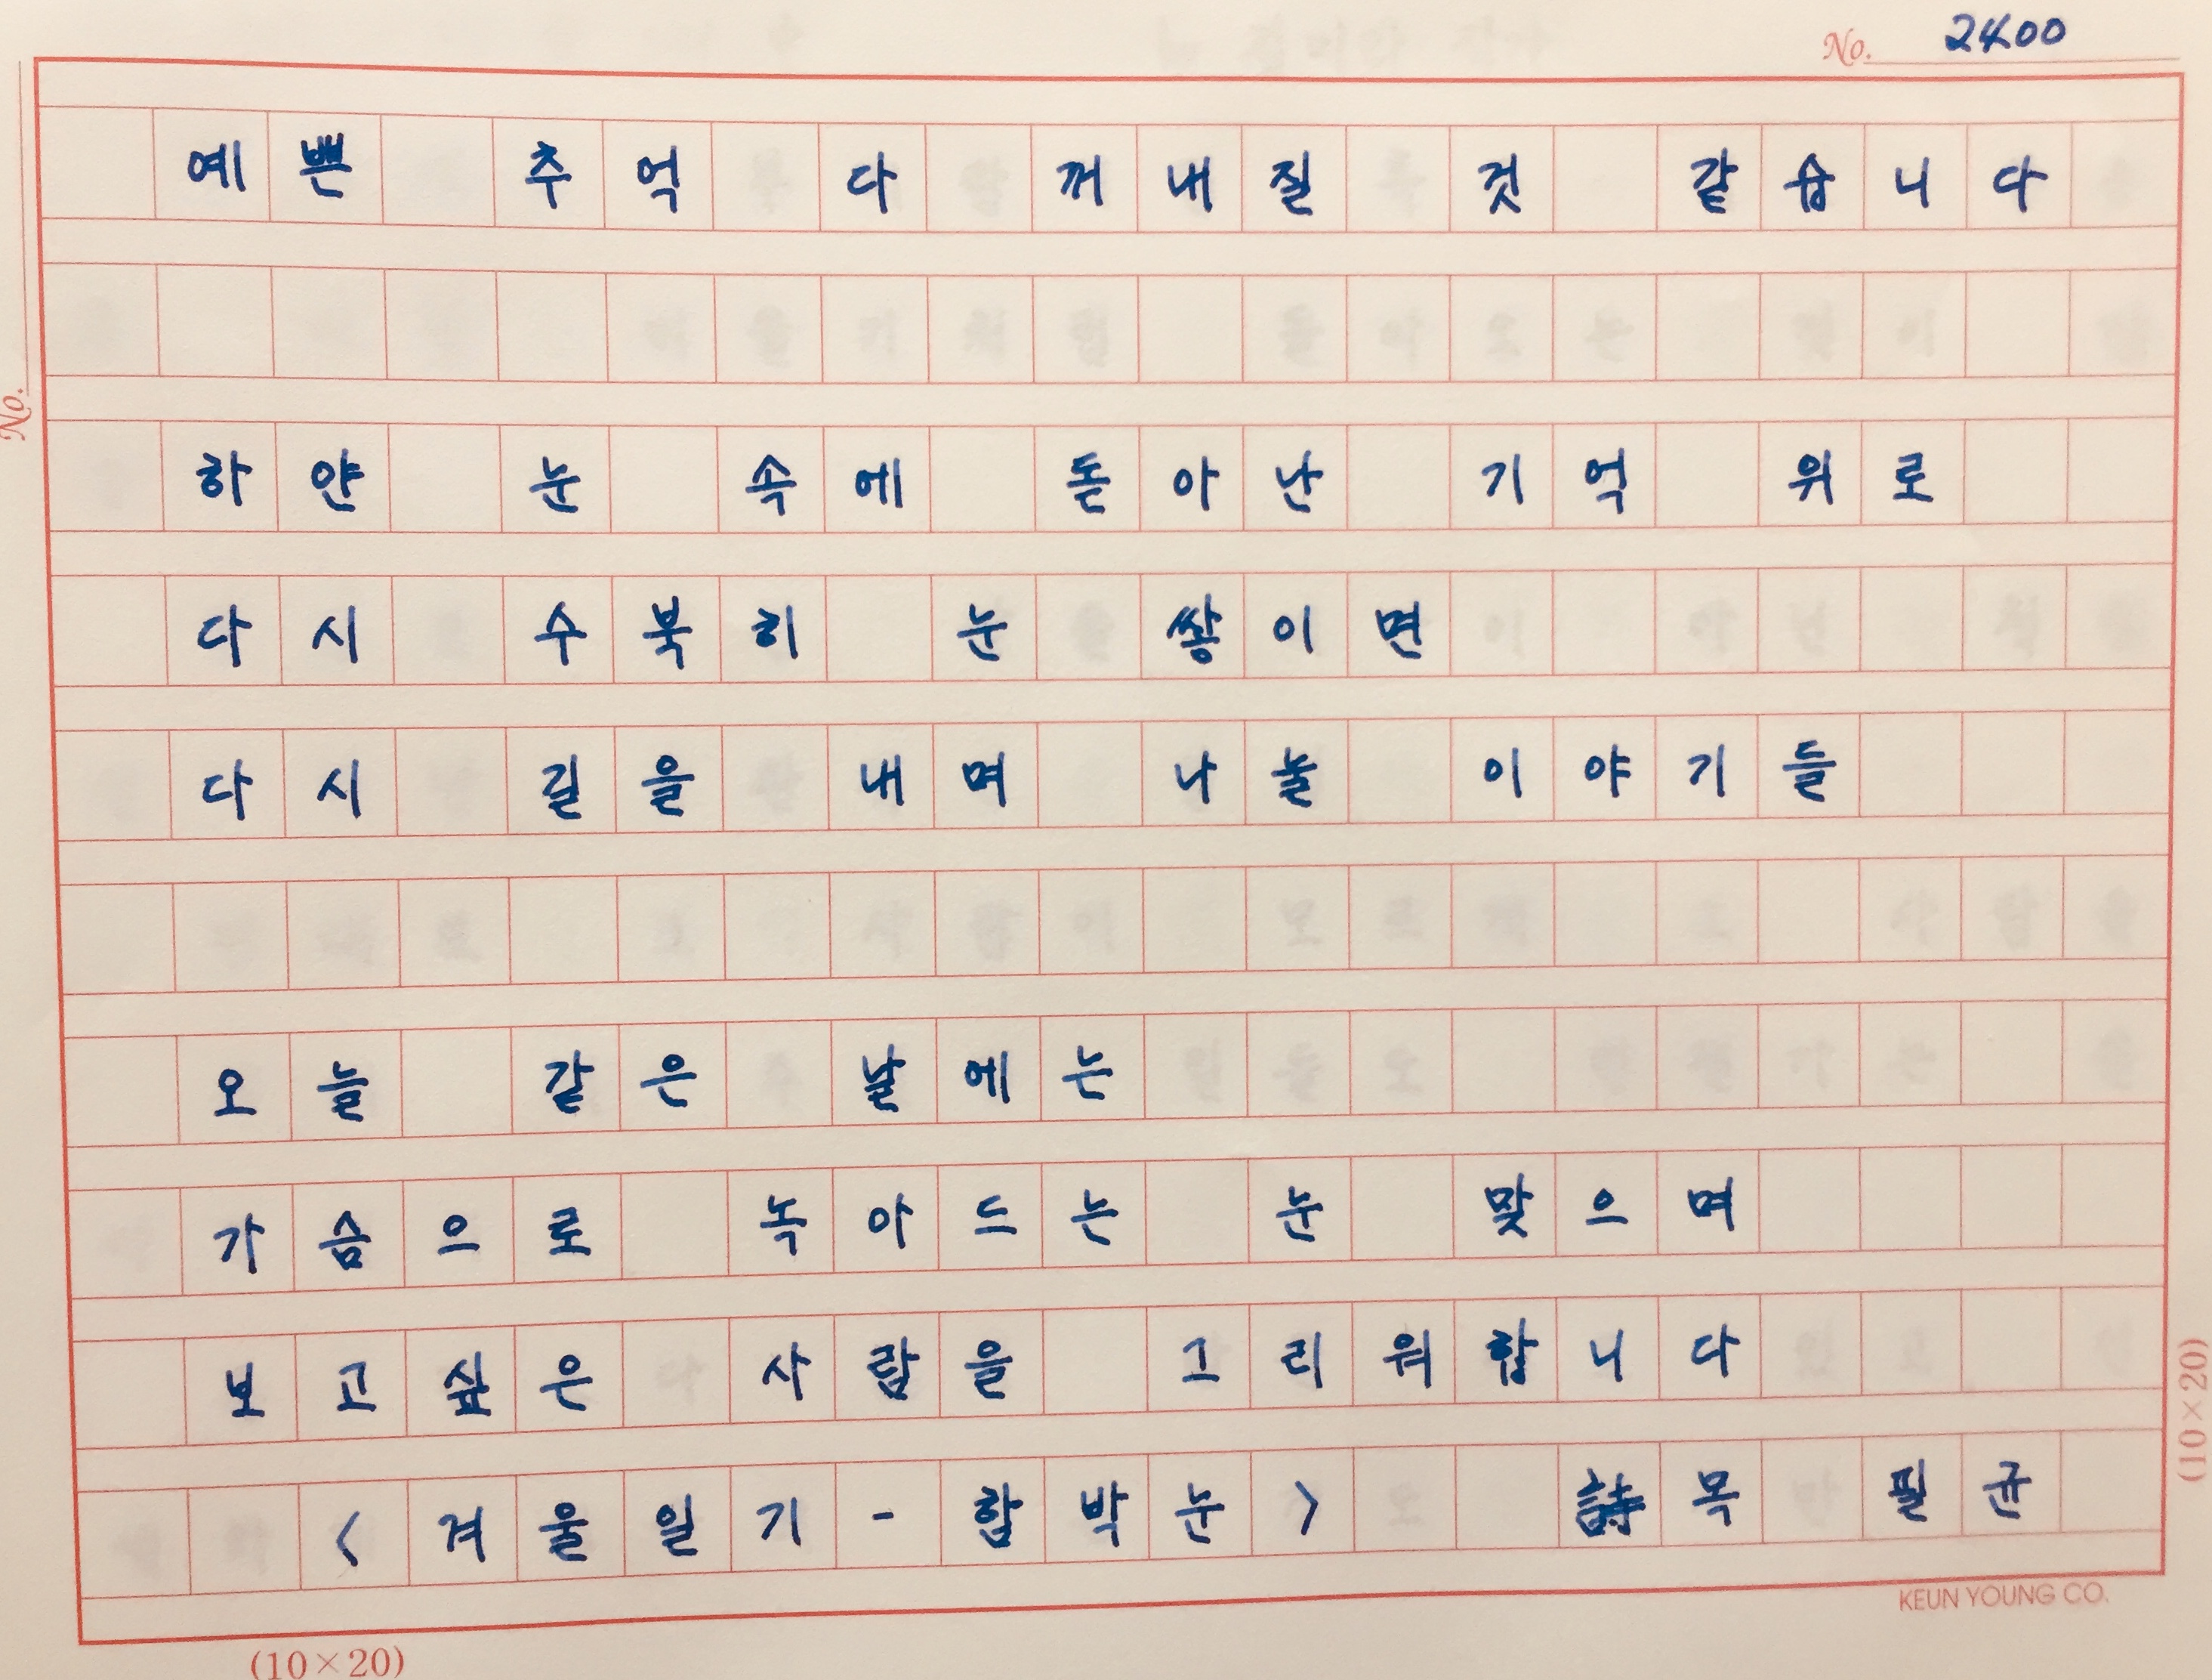 No. 2400
예쁜 추억 다 꺼내질 것 같습니다
하얀 눈 속에 돋아난 기억 위로
다시 수북히 눈 쌓이면
No.
다시 길을 내며 나눌 이야기들
오늘 같은 날에는
가슴으로 녹아드는 눈 맞으며
보고싶은 사람을 그리워합니다
<겨울일기-함박눈> 詩 목필균
(10×20)
KEUN YOUNG CO.
(10×20)